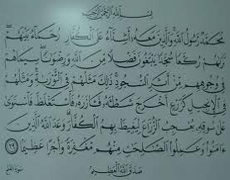 بِسْمِ اللَّهِ الرَّحْمَٰنِ الرَّحِيمِ
مُحَمَّدٌ رَسُولُ اللَّهِ وَالَّذِينَ مَعَهُ أَشِدَّاءُ عَلَى الْكُفَّارِ رُحَمَاءُ بَيْنَهُمْ
تَرَاهُمْ رُكَّعًا سُجَّدًا يَبْتَغُونَ فَضْلًا مِنَ اللَّهِ وَرِضْوَانًا سِيمَاهُمْ
فِي وُجُوهِهِمْ مِنْ أَثَرِ السُّجُودِ ذَٰلِكَ مَثَلُهُمْ فِي التَّوْرَاةِ وَمَثَلُهُمْ
فِي الْإِنْجِيلِ كَزَرْعٍ أَخْرَجَ شَطْأَهُ فَآزَرَهُ فَاسْتَغْلَظَ فَاسْتَوَىٰ
عَلَىٰ سُوقِهِ يُعْجِبُ الزُّرَّاعَ لِيَغِيظَ بِهِمُ الْكُفَّارَ وَعَدَ اللَّهُ الَّذِينَ
آمَنُوا وَعَمِلُوا الصَّالِحَاتِ مِنْهُمْ مَغْفِرَةً وَأَجْرًا عَظِيمًا ٢٩
صَدَقَ اللَّهُ الْعَظِيمُ سورة الفتح